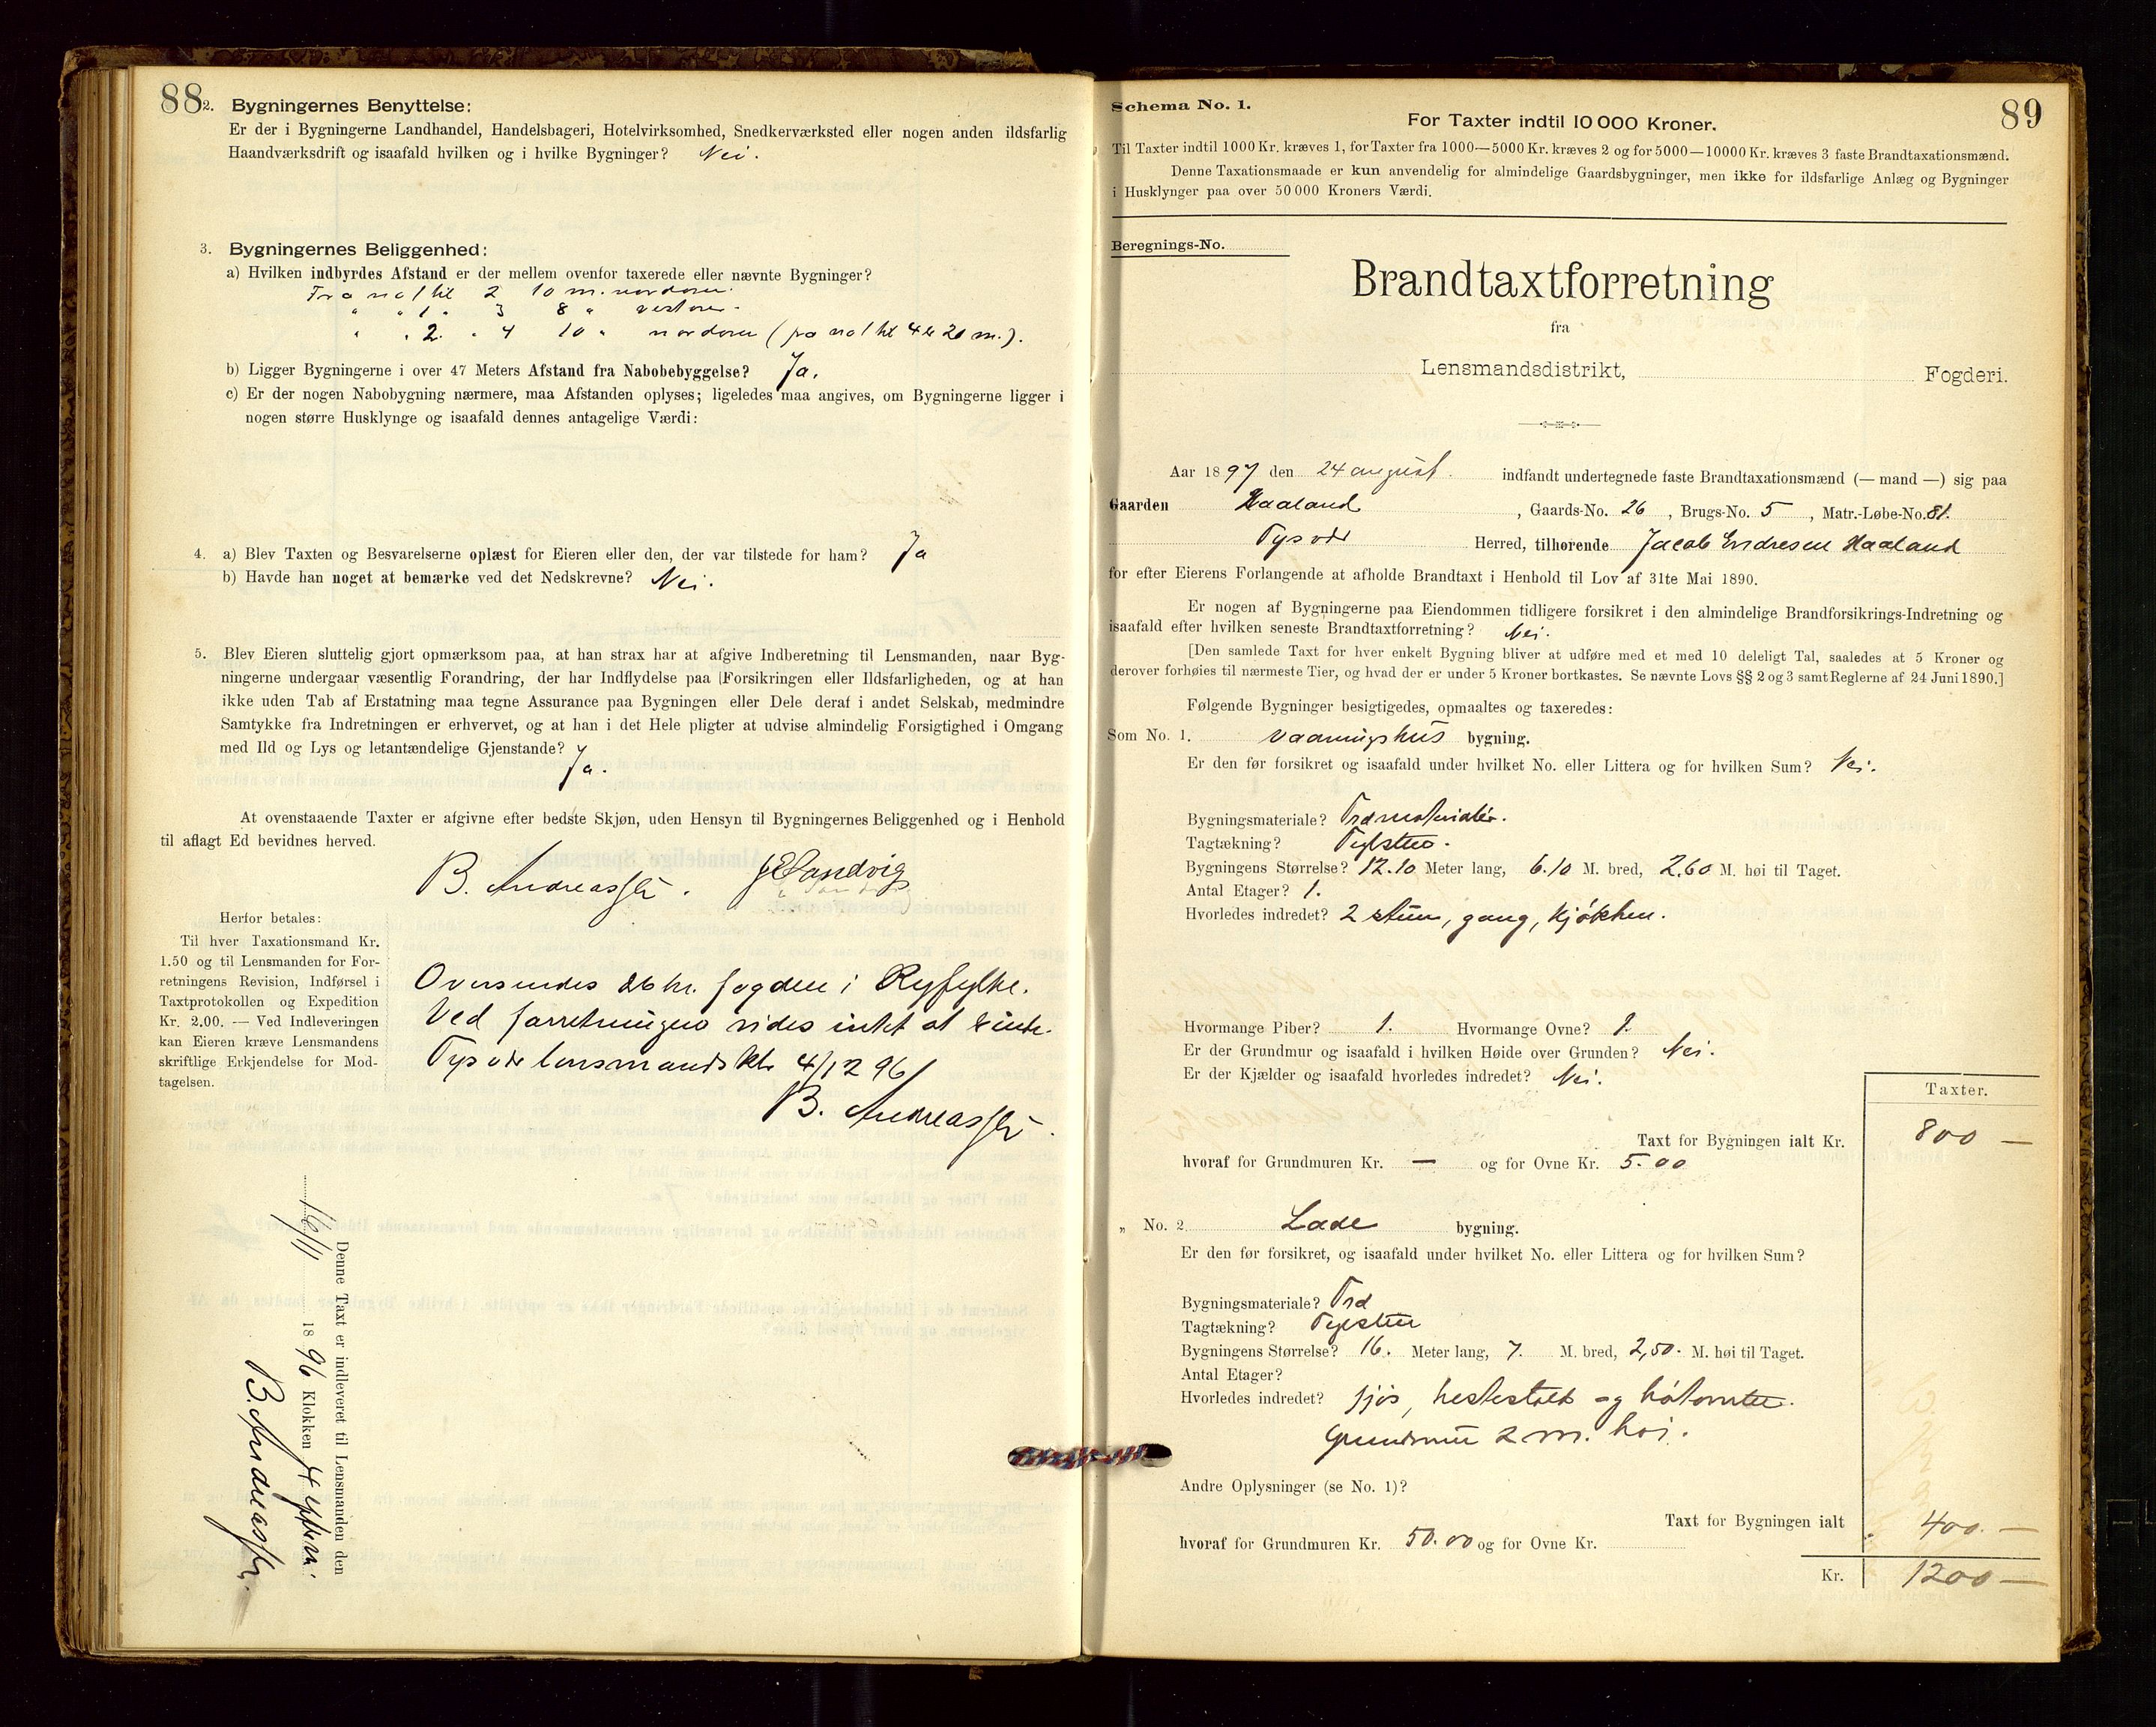 88
2. Bygningernes Benyttelse:
Er der i Bygningerne Landhandel, Handelsbageri, Hotelvirksomhed, Snedkerværksted eller nogen anden ildsfarlig
Haandværksdrift og isaafald hvilken og i hvilke Bygninger? Nei.
3. Bygningernes Beliggenhed:
a) Hvilken indbyrdes Afstand er der mellem ovenfor taxerede eller nævnte Bygninger?
Fra no 1 til 2 10 m. nordom.
" " 1 " 3 8 " vestom.
" " 2. " 4 10 " nordom (fra no 1 til 4 er 20 m.).
b) Ligger Bygningerne i over 47 Meters Afstand fra Nabobebyggelse? Ja.
c) Er der nogen Nabobygning nærmere, maa Afstanden oplyses; ligeledes maa angives, om Bygningerne ligger i
nogen større Husklynge og isaafald dennes antagelige Værdi:
4. a) Blev Taxten og Besvarelserne oplæst for Eieren eller den, der var tilstede for ham? Ja
b) Havde han noget at bemærke ved det Nedskrevne? Nei.
5. Blev Eieren sluttelig gjort opmærksom paa, at han strax har at afgive Indberetning til Lensmanden, naar Byg-
ningerne undergaar væsentlig Forandring, der har Indflydelse paa Forsikringen eller Ildsfarligheden, og at han
ikke uden Tab af Erstatning maa tegne Assurance paa Bygningen eller Dele deraf i andet Selskab, medmindre
Samtykke fra Indretningen er erhvervet, og at han i det Hele pligter at udvise almindelig Forsigtighed i Omgang
med Ild og Lys og letantændelige Gjenstande? Ja.
At ovenstaaende Taxter er afgivne efter bedste Skjøn, uden Hensyn til Bygningernes Beliggenhed og i Henhold
til aflagt Ed bevidnes herved.
B. Andreassen. Sandvig
Herfor betales:
Til hver Taxationsmand Kr.
1.50 og til Lensmanden for For-
retningens Revision, Indførsel i
Taxtprotokollen og Expedition
Kr. 2.00. — Ved Indleveringen
kan Eieren kræve Lensmandens
skriftlige Erkjendelse for Mod-
tagelsen.
Oversendes hr. fogden i Ryfylke.
Ved forretningen vides intet at
Tysvær lensmands 4/12 96
B. Andreassen.
Denne Taxt er indleveret til Lensmanden den
16/11 1896 Klokken 4
B. Andreassen.
89
Schema No. 1.
For Taxter indtil 10 000 Kroner.
Til Taxter indtil 1000 Kr. kræves 1, for Taxter fra 1000—5000 Kr. kræves 2 og for 5000—10000 Kr. kræves 3 faste Brandtaxationsmænd.
Denne Taxationsmaade er kun anvendelig for almindelige Gaardsbygninger, men ikke for ildsfarlige Anlæg og Bygninger
i Husklynger paa over 50 000 Kroners Værdi.
Beregnings-No.
Brandtaxtforretning
fra
Lensmandsdistrikt, Fogderi.
Aar 1897 den 24 august. indfandt undertegnede faste Brandtaxationsmænd (— mand —) sig paa
Gaarden Haaland, Gaards-No. 26, Brugs-No. 5, Matr.-Løbe-No. 81.
Tysvær Herred, tilhørende Jacob Endresen Haaland
for efter Eierens Forlangende at afholde Brandtaxt i Henhold til Lov af 31te Mai 1890.
Er nogen af Bygningerne paa Eiendommen tidligere forsikret i den almindelige Brandforsikrings-Indretning og
isaafald efter hvilken seneste Brandtaxtforretning? Nei.
[Den samlede Taxt for hver enkelt Bygning bliver at udføre med et med 10 deleligt Tal, saaledes at 5 Kroner og
derover forhøies til nærmeste Tier, og hvad der er under 5 Kroner bortkastes. Se nævnte Lovs §§ 2 og 3 samt Reglerne af 24 Juni 1890.]
Følgende Bygninger besigtigedes, opmaaltes og taxeredes:
Som No. 1. Vaaningshus bygning.
Er den før forsikret og isaafald under hvilket No. eller Littera og for hvilken Sum? Nei.
Bygningsmateriale? Træmaterialer.
Tagtækning? Teglsten.
Bygningens Størrelse? 12.10 Meter lang, 6.10 M. bred, 2,60 M. høi til Taget.
Antal Etager? 1.
Hvorledes indredet? 2 stuer, gang, kjøkken.
Hvormange Piber? 1. Hvormange Ovne? 1.
Er der Grundmur og isaafald i hvilken Høide over Grunden? Nei.
Er der Kjælder og isaafald hvorledes indredet? Nei.
Taxter.
Taxt for Bygningen ialt Kr. 800 —
hvoraf for Grundmuren Kr. — og for Ovne Kr. 5.00
„ No. 2. Lade bygning.
Er den før forsikret, og isaafald under hvilket No. eller Littera og for hvilken Sum?
Bygningsmateriale? Træ
Tagtækning? Teglsten
Bygningens Størrelse? 16. Meter lang, 7. M. bred, 2,50. M. høi til Taget.
Antal Etager?
Hvorledes indredet? fjøs, hestestald og
Grundmur 2 m. høi.
Andre Oplysninger (se No. 1)?
Taxt for Bygningen ialt 400. —
hvoraf for Grundmuren Kr. 50.00 og for Ovne Kr.
Kr. 1200 —